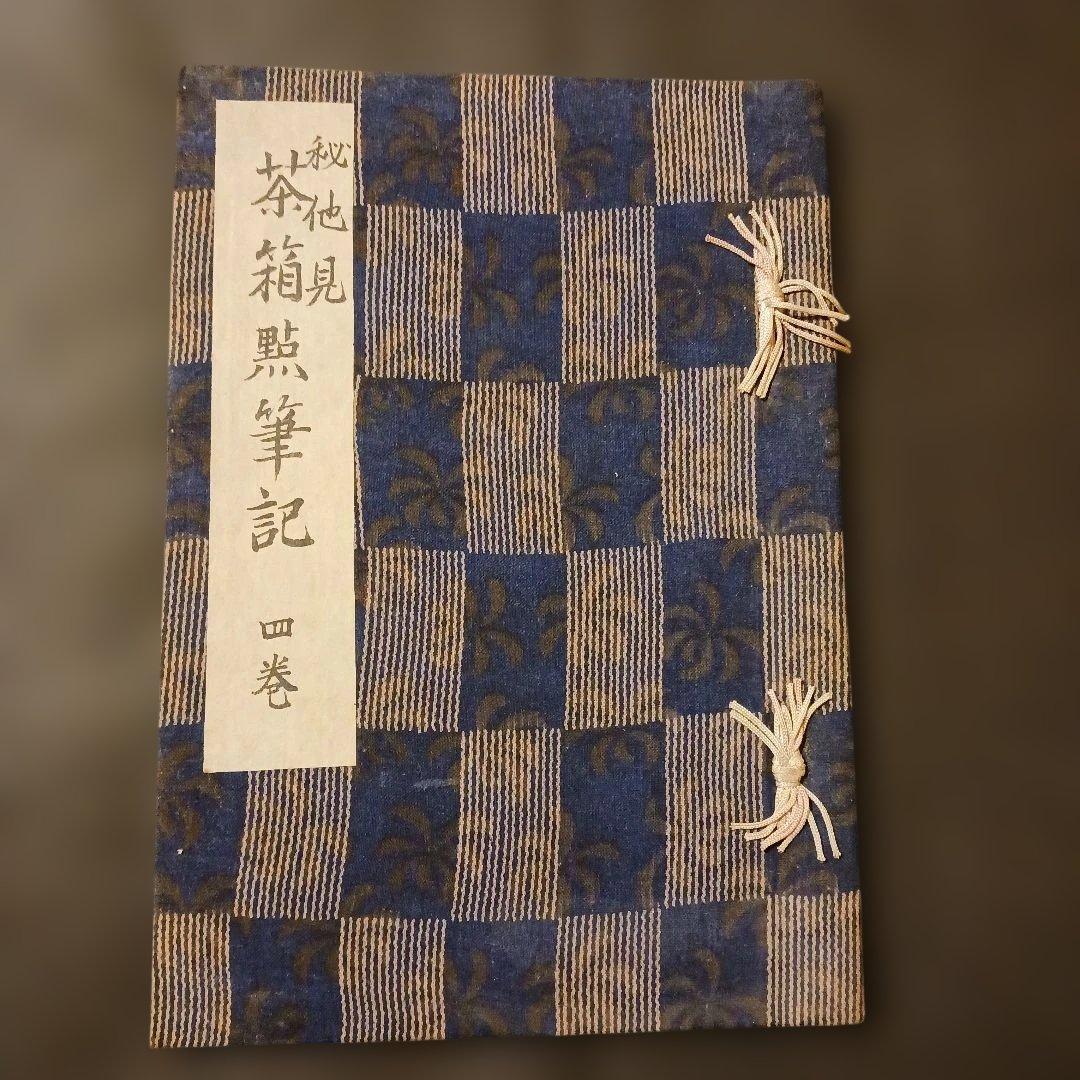 秘他見
茶箱點筆記
四巻